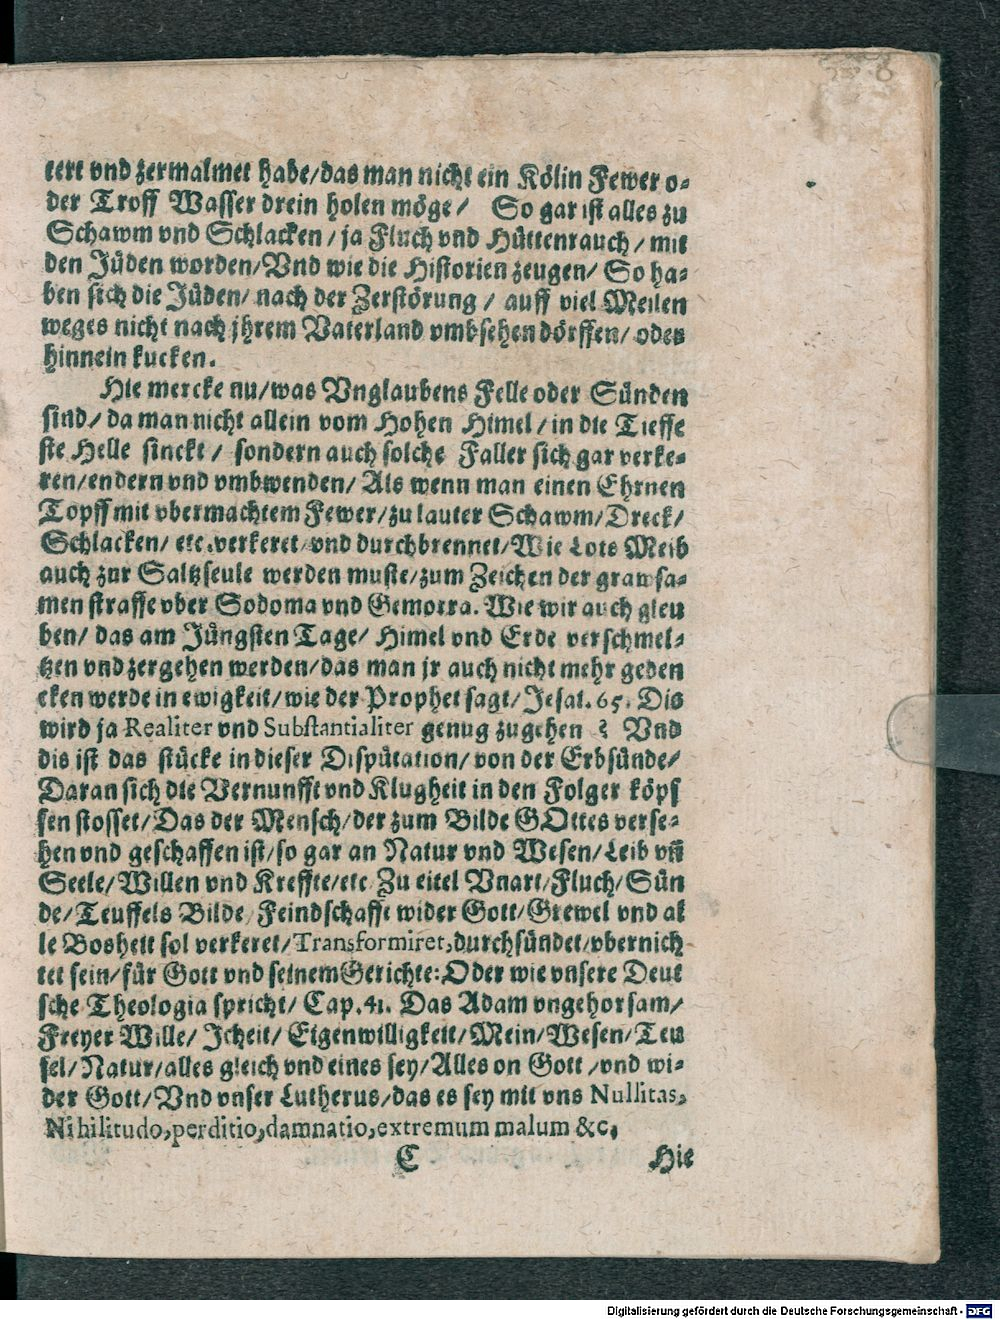 tert vnd zermalmet habe/das man nicht ein Kölin Fewer o-
der Troff Wasser drein holen möge/ So gar ist alles zu
Schawm vnd Schlacken/ja Fluch vnd Hüttenrauch/mit
den Jüden worden/Vnd wie die Historien zeugen/ So ha-
ben sich die Jüden/nach der Zerstörung/ auff viel Meilen
weges nicht nach jhrem Vaterland vmbsehen dörffen/ oder
hinnein kucken.
Hie mercke nu/was Vnglaubens Felle oder Sünden
sind/da man nicht allein vom Hohen Himel/in die Tieffe
ste Helle sinckt/ sondern auch solche Faller sich gar verke-
ren/endern vnd vmbwenden/ Als wenn man einen Ehrnen
Topff mit vbermachtem Fewer/zu lauter Schawm/Dreck/
Schlacken/etc.verkeret vnd durchbrennet/Wie Lots Weib
auch zur Saltzseule werden muste/zum Zeichen der grawsa-
men straffe vber Sodoma vnd Gemorra. Wie wir auch gleu
ben/ das am Jüngsten Tage/ Himel vnd Erde verschmel-
tzen vnd zergehen werden/das man jr auch nicht mehr geden
cken werde in ewigkeit/wie der Prophet sagt/Jesai. 65. Dis
wird ja Realiter vnd Substantialiter genug zugehen ? Vnd
dis ist das stücke in dieser Disputation/von der Erbsünde/
Daran sich die Vernunfft vnd Klugheit in den Folger köpf
fen stosset/Das der Mensch/der zum Bilde GOttes verse-
hen vnd geschaffen ist/so gar an Natur vnd Wesen/Leib vñ
Seele/Willen vnd Kreffte/etc Zu eitel Vnart/Fluch/Sün
de/Teuffels Bilde/Feindschafft wider Gott/Grewel vnd al
le Bosheit sol verkeret/Transformiret,durchsündet/vbernich
tet sein/für Gott vnd seinem Gerichte:Oder wie vnsere Deut
sche Theologia spricht/ Cap.41. Das Adam vngehorsam/
Freyer Wille/ Jcheit/ Eigenwilligkeit/Mein/Wesen/Teu
fel/Natur/alles gleich vnd eines sey/Alles on Gott /vnd wi-
der Gott/Vnd vnser Lutherus/das es sey mit vns Nullitas,
Nihilitudo,perditio,damnatio,extremum malum &c,
C Hie
8
Digitalisierung gefördert durch die Deutsche Forschungsgemeinschaft - DFG